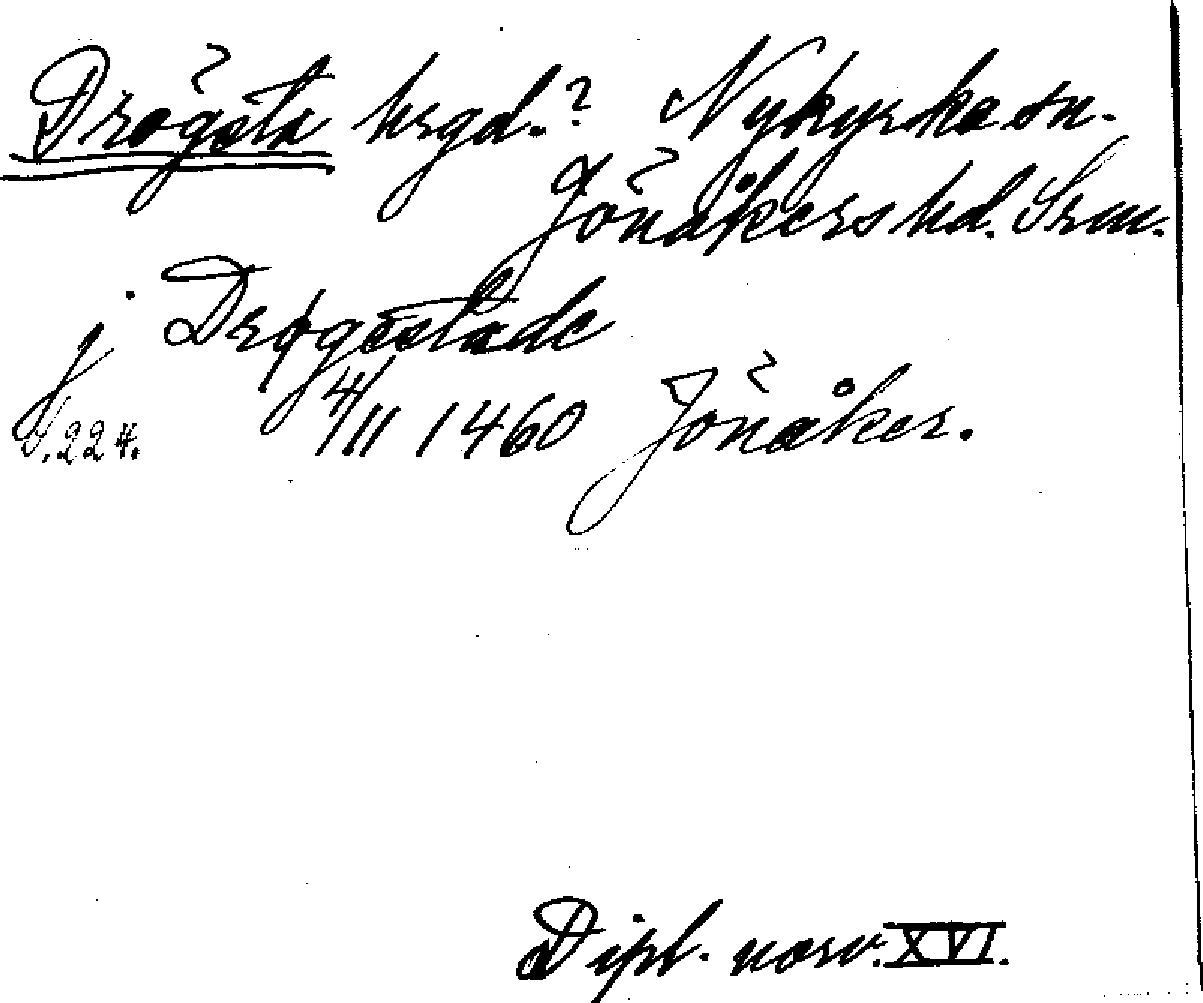 Drögsta hrgd.? Nykyrka sn.
Jönåkers hd. Srm.
j Drøgestade
S. 224. 4/11 1460 Jönåker.
Dipl. norv. XVI.